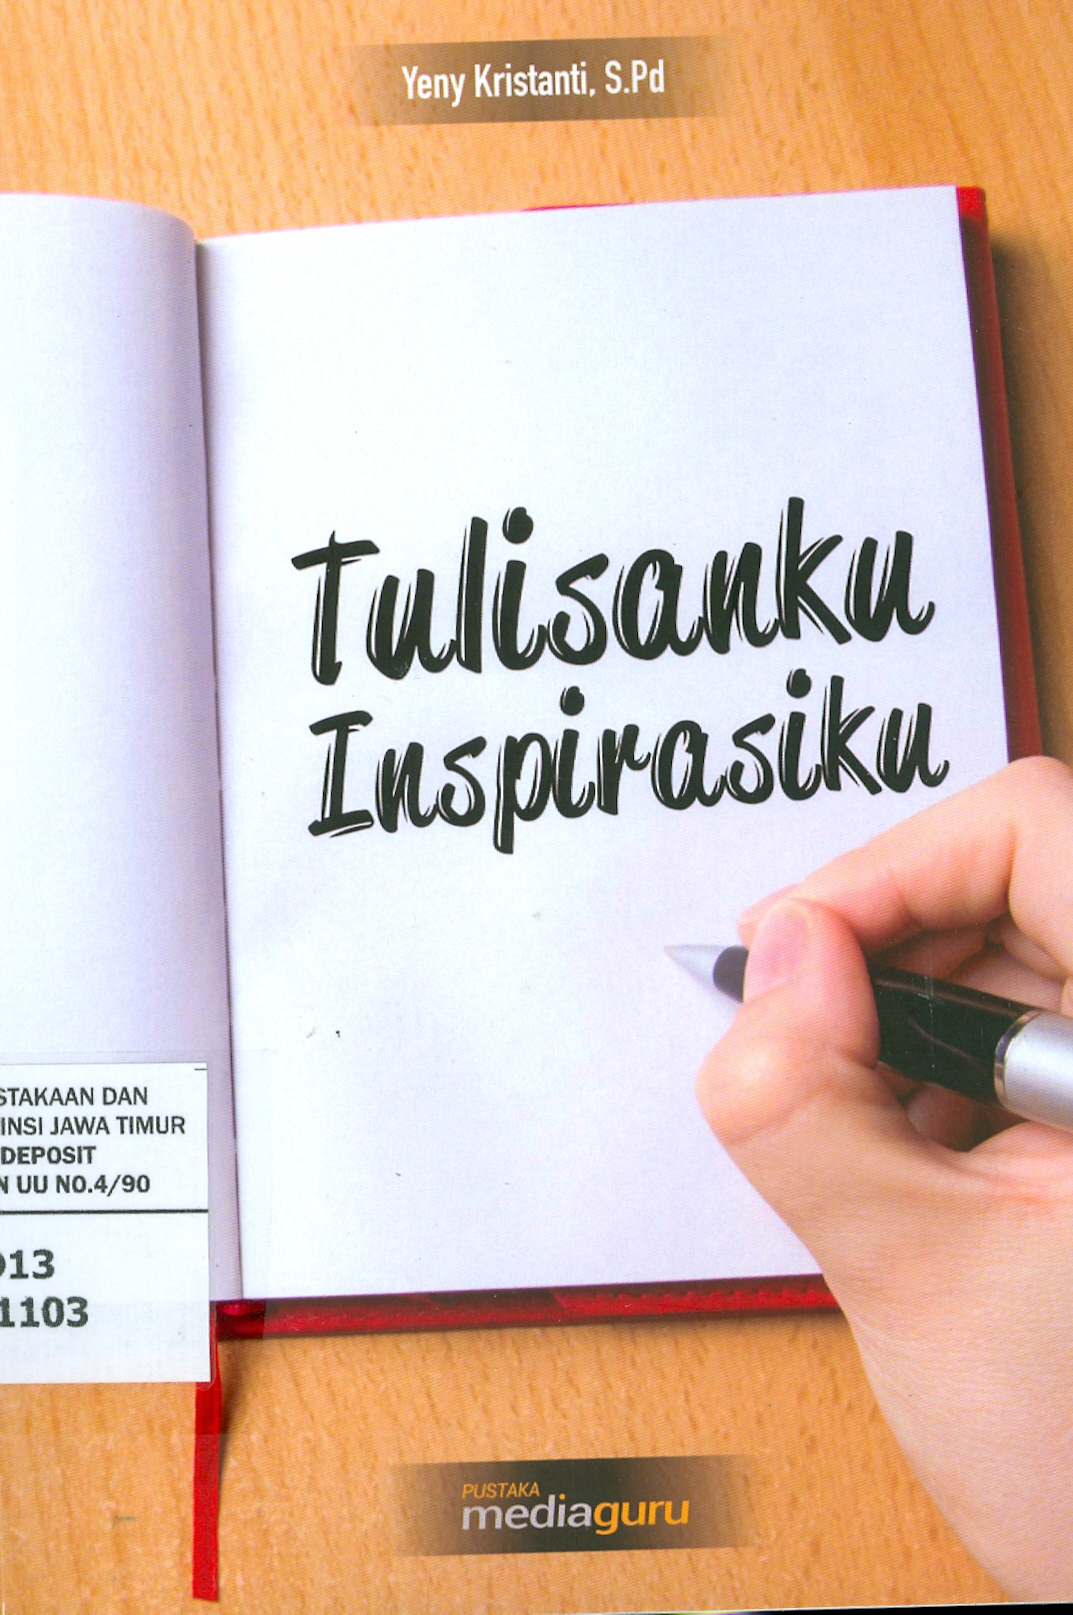 Yeny Kristanti, S.Pd
Tulisanku
Inspirasiku
STAKAAN DAN
INSI JAWA TIMUR
DEPOSIT
N UU NO.4/90
13
1103
PUSTAKA
mediaguru